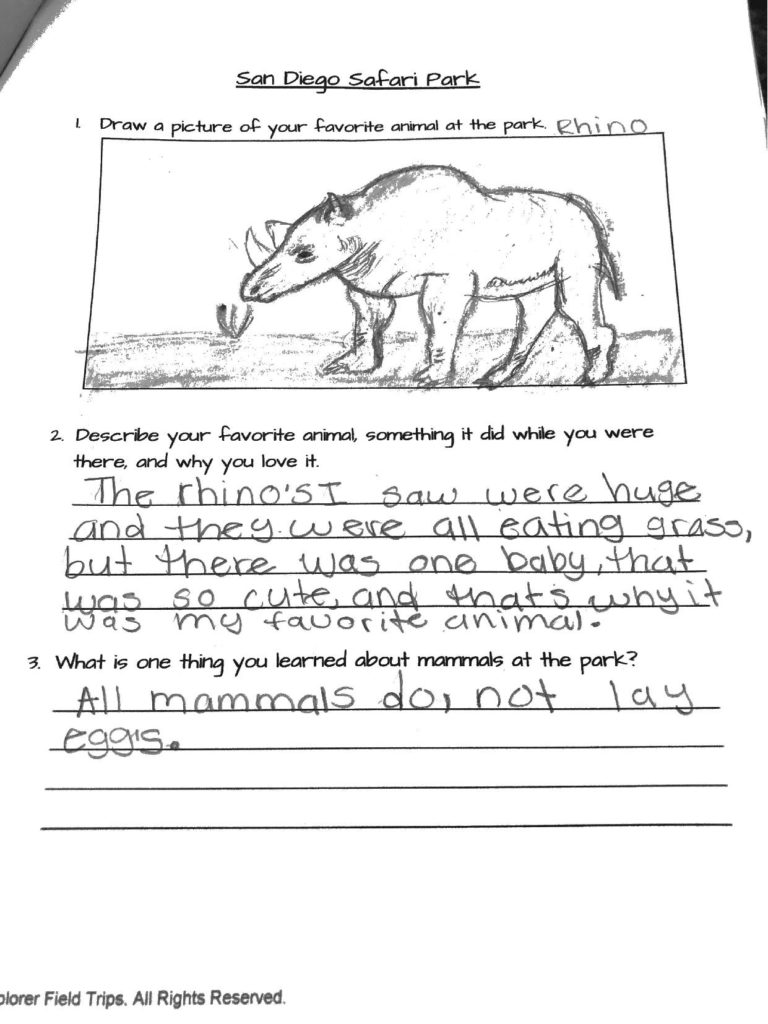 San Diego Safari Park
1. Draw a picture of your favorite animal at the park. Rhino
2. Describe your favorite animal, something it did while you were
there, and why you love it.
The rhino's I saw were huge
and they were all eating grass,
but there was one baby, that
was so cute, and that's why it
was my favorite animal.
3. What is one thing you learned about mammals at the park?
All mammals do, not lay
eggs.
plorer Field Trips. All Rights Reserved.